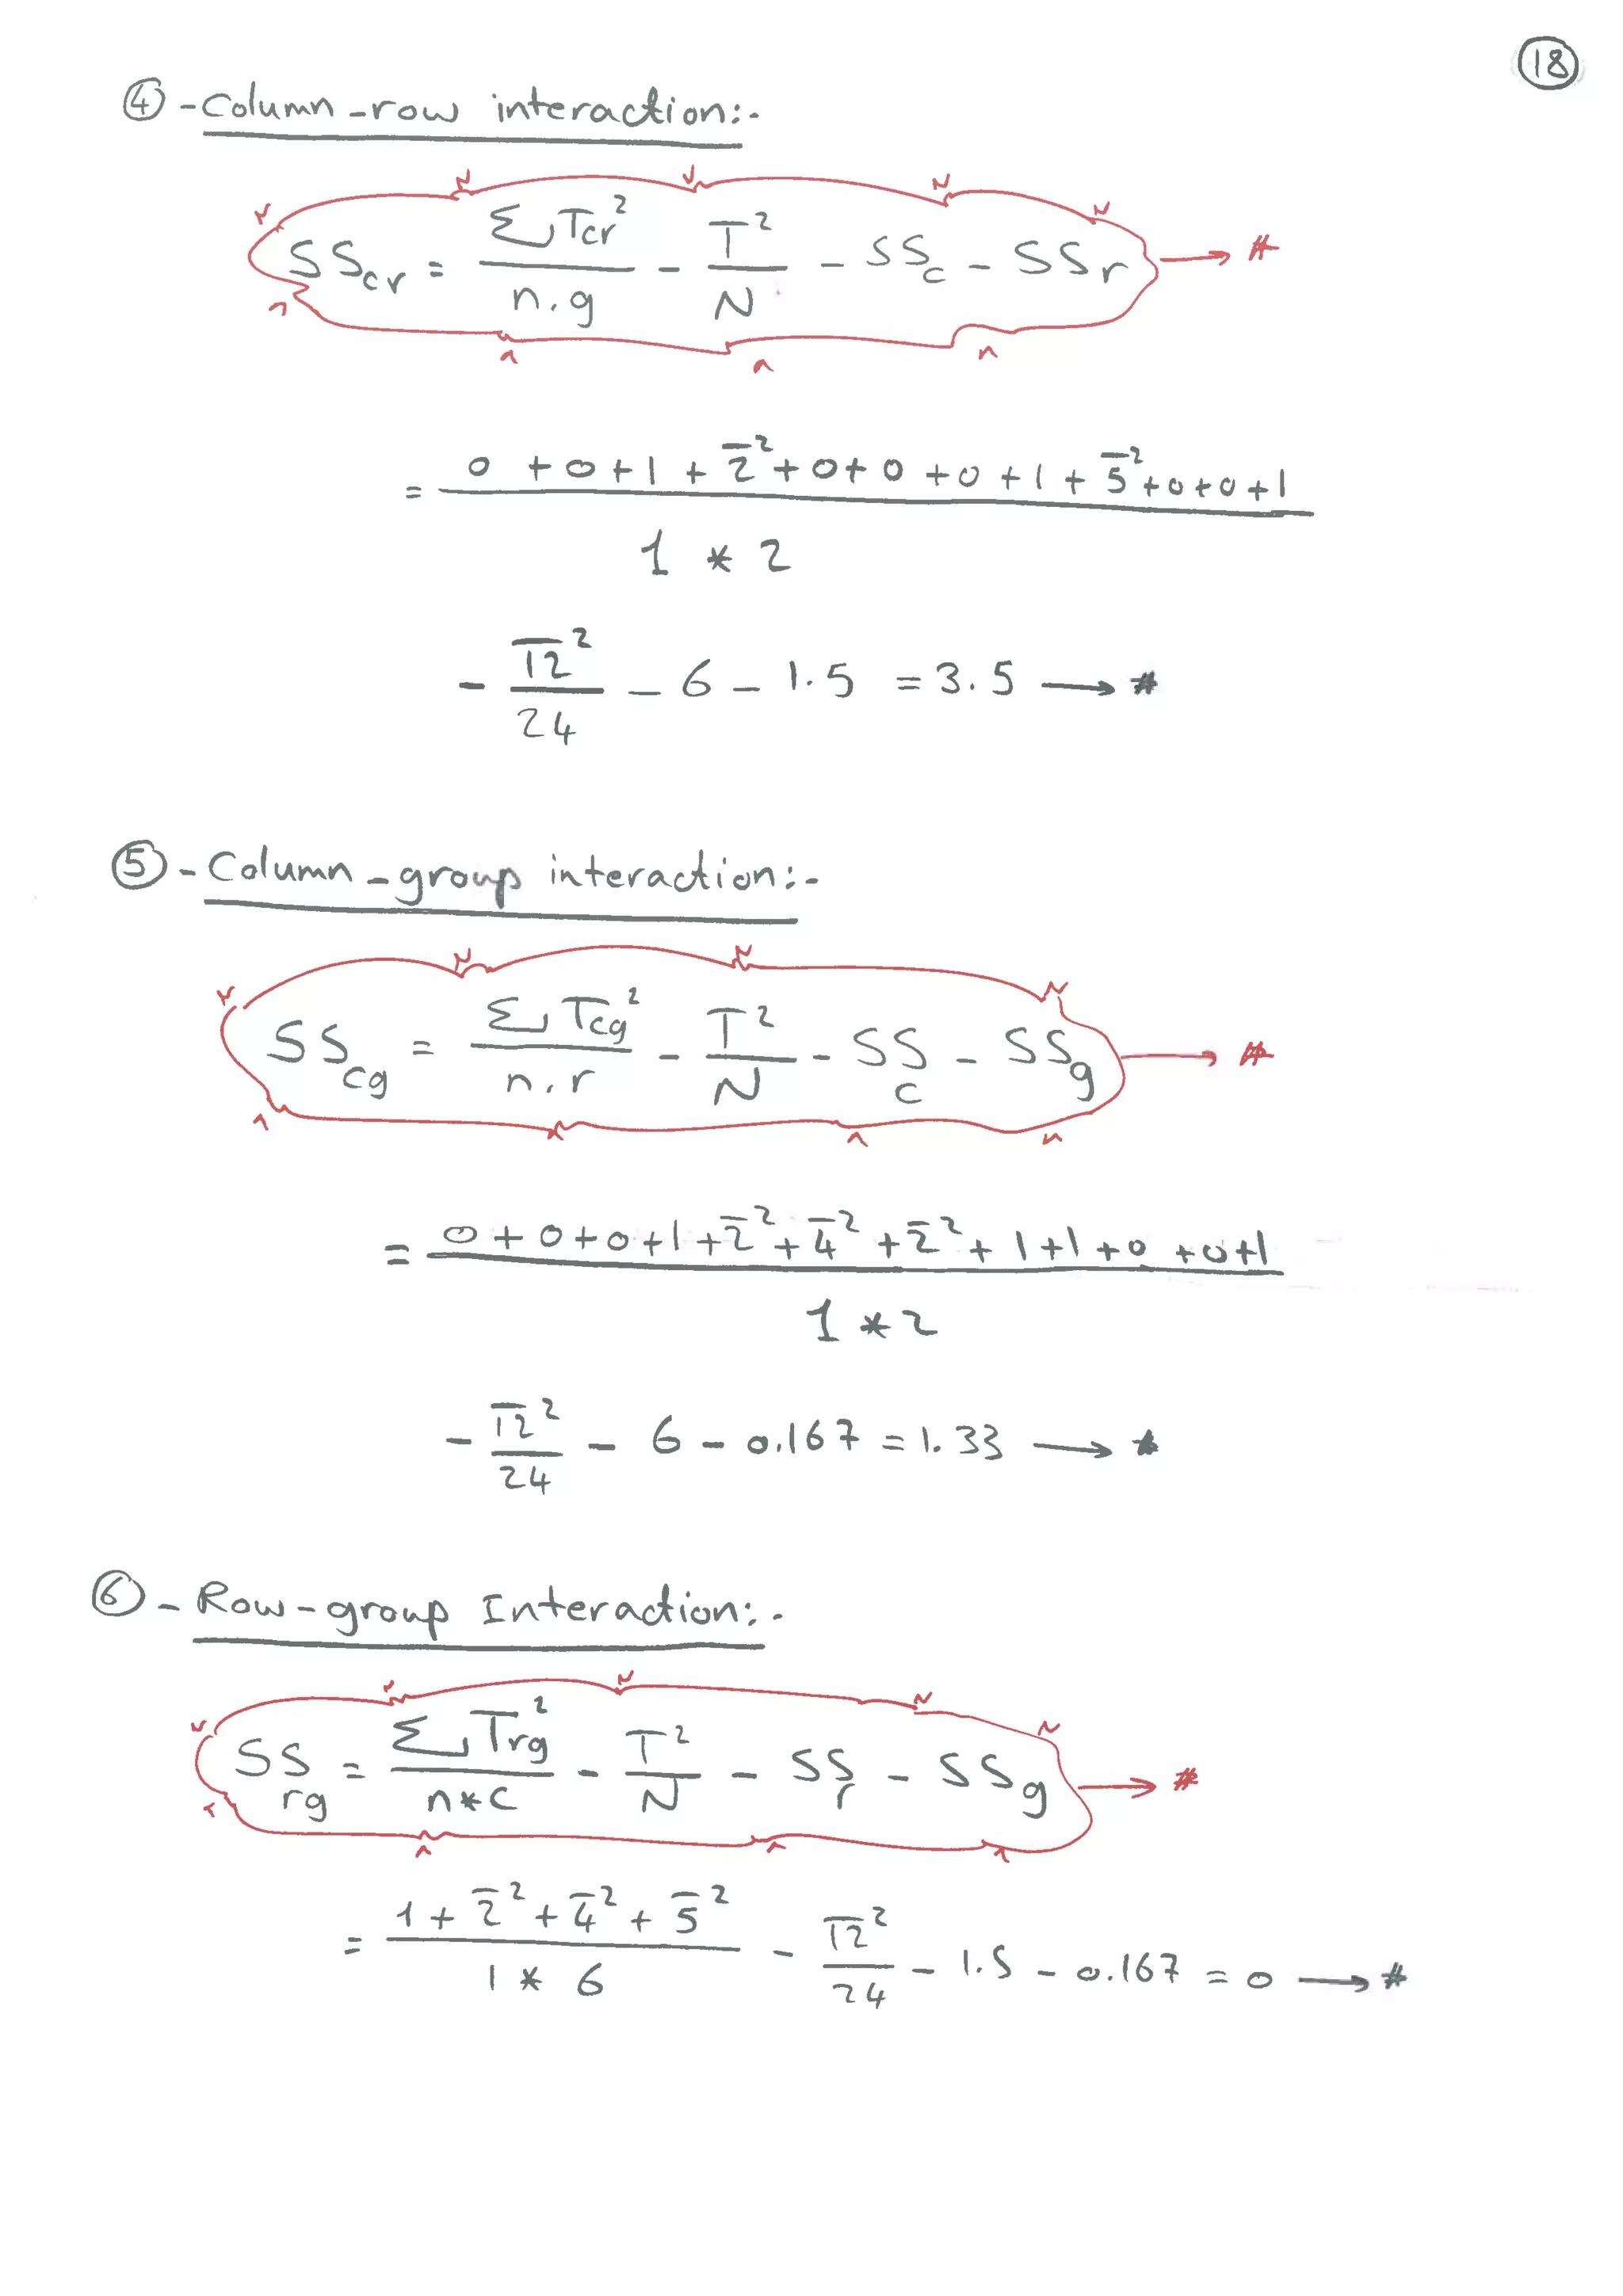 18
④ - Column - row interaction:-
SScr = ΣTcr² / n.g - T² / N - SSc - SSr → #
= 0 + 0 + 1 + 2̅² + 0 + 0 + 0 + 1 + 5̅² + 0 + 0 + 1 / 1 * 2
- 1̅2̅² / 24 - 6 - 1.5 = 3.5 → #
⑤ - Column - group interaction:-
SScg = ΣTcg² / n.r - T² / N - SSc - SSg → #
= 0 + 0 + 0 + 1 + 2̅² + 4̅² + 2̅² + 1 + 1 + 0 + 0 + 1 / 1 * 2
- 1̅2̅² / 24 - 6 - 0.167 = 1.33 → #
⑥ - Row - group Interaction:-
SSrg = ΣTrg² / n*c - T² / N - SSr - SSg → #
= 1 + 2̅² + 4̅² + 5̅² / 1 * 6 - 1̅2̅² / 24 - 1.5 - 0.167 = 0 → #